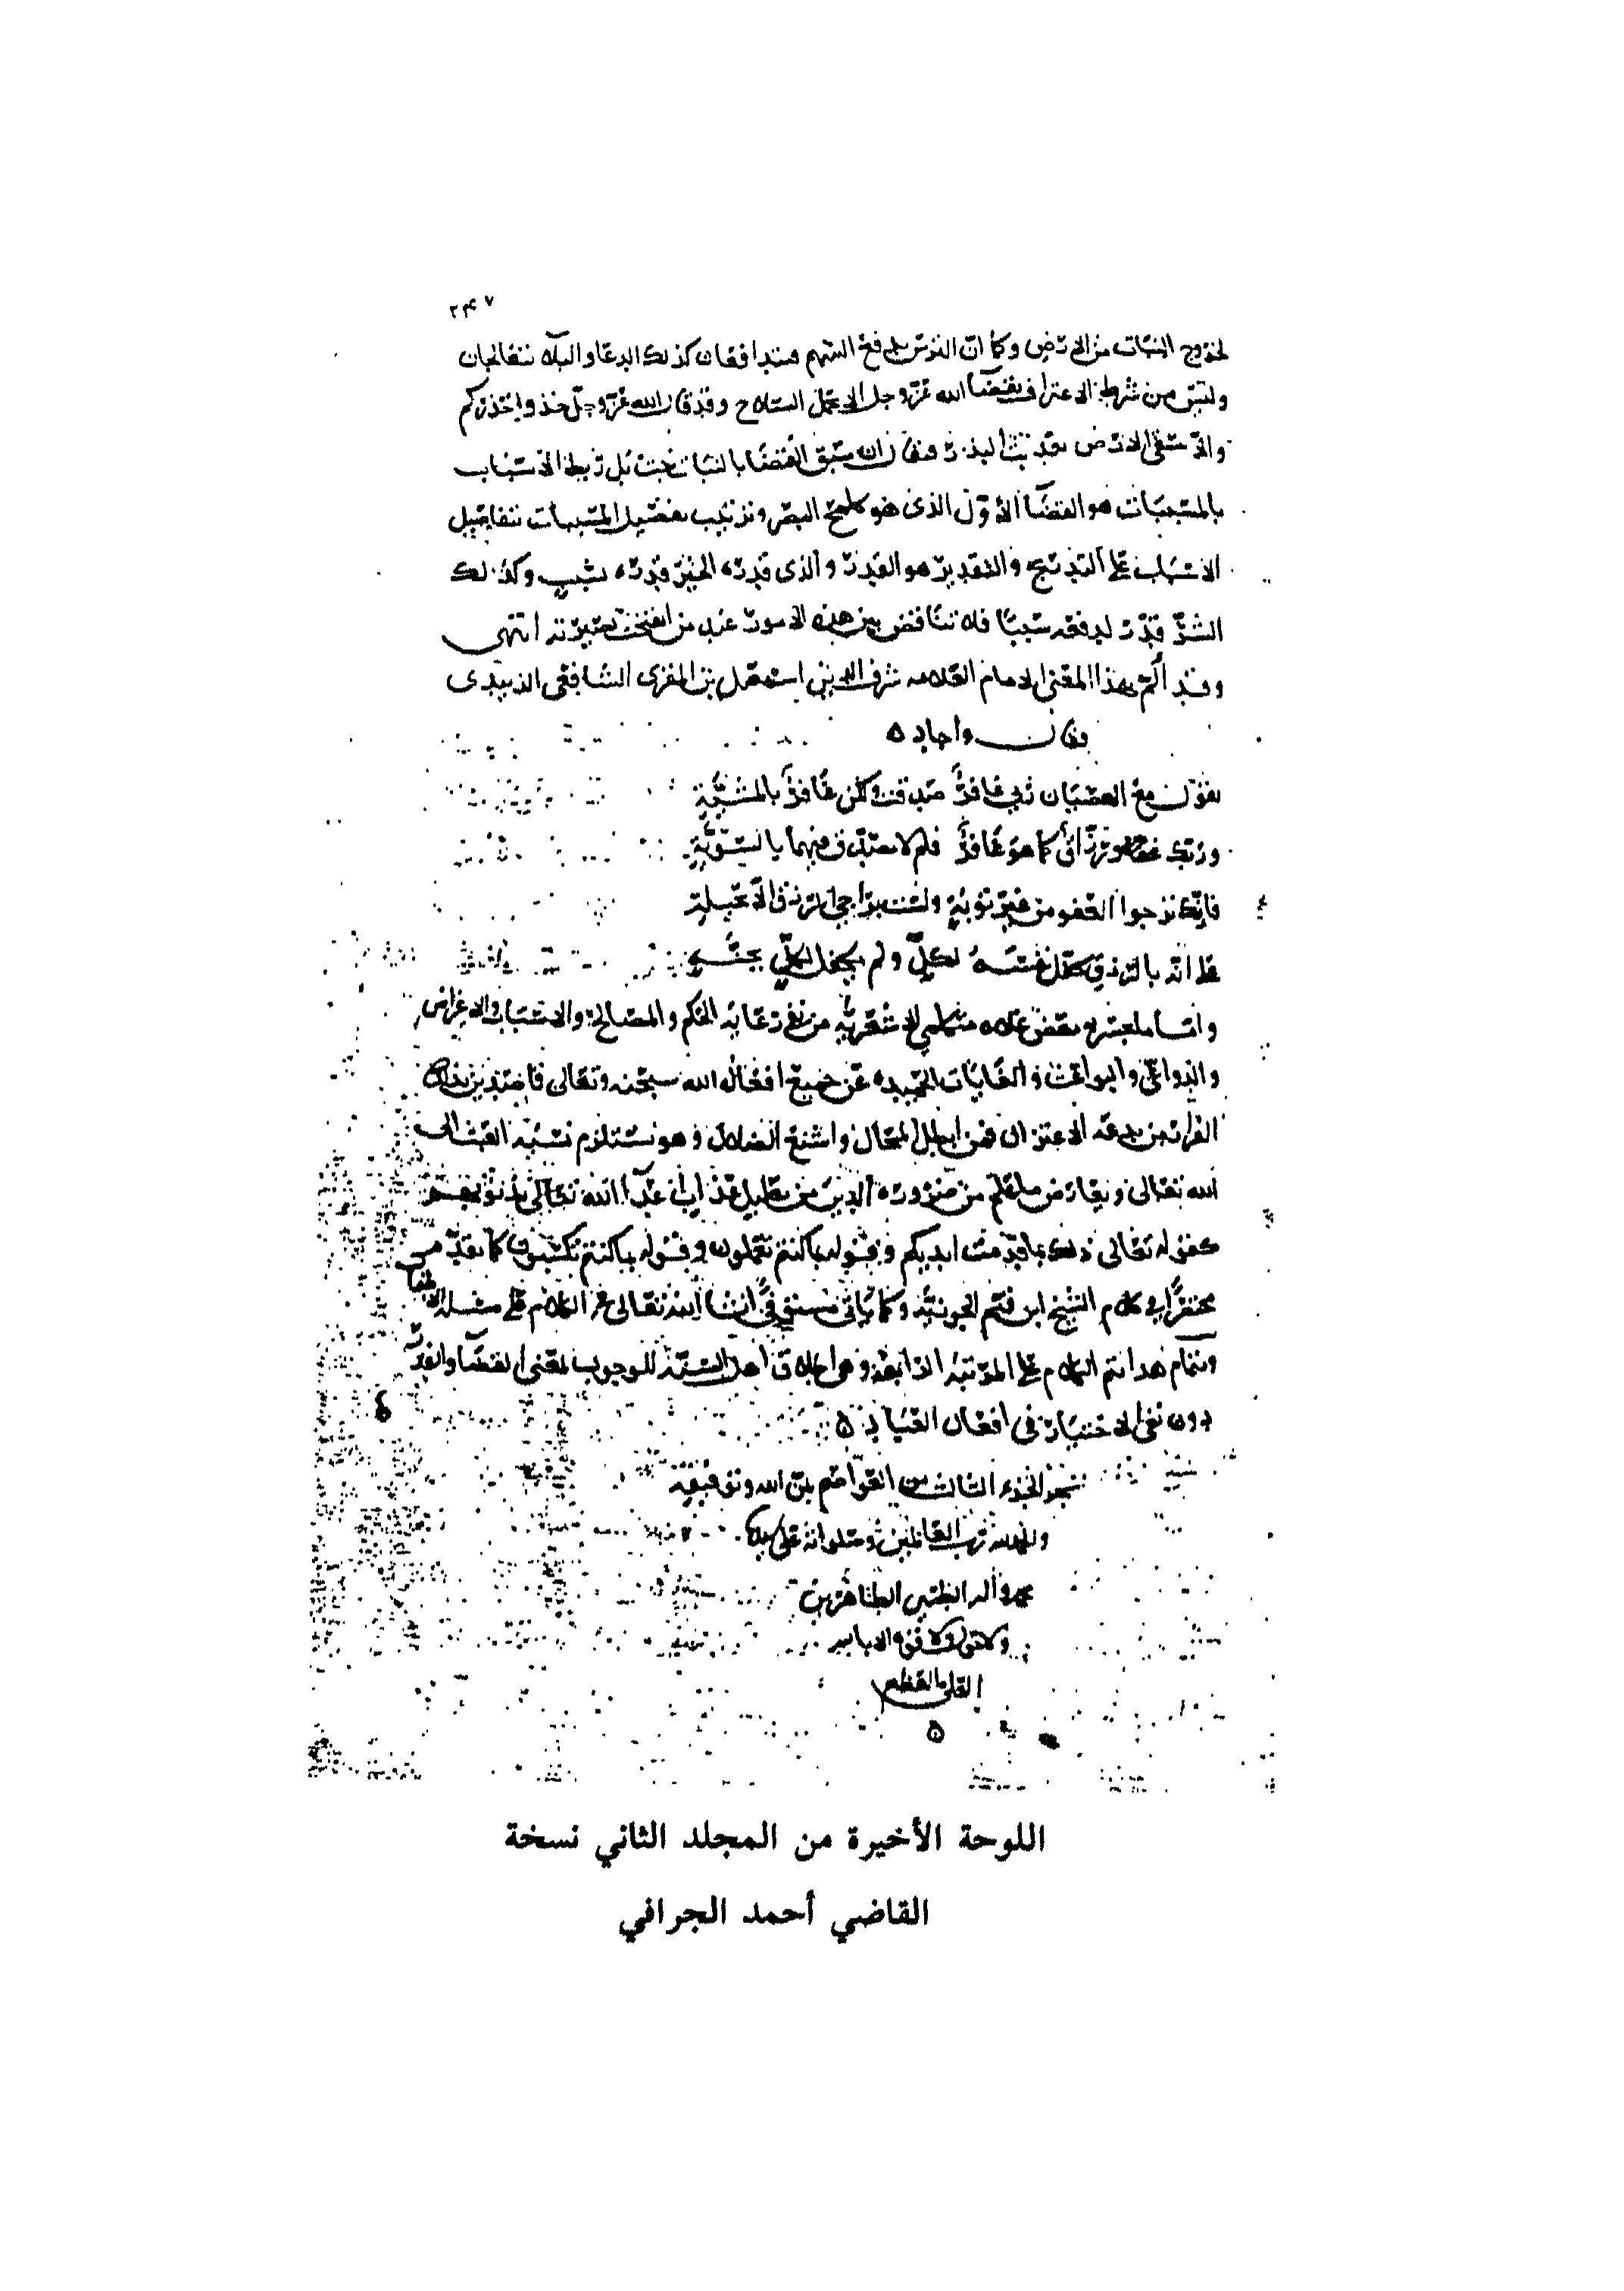 ٢٤٧
لخروج النبات من الارض وكما ان الترس يدفع السهم فيتدافعان كذلك الدعا والبلاء يتعالجان
وليس من شرط الاعتراف بقضآ الله عز وجل الا يحمل السلاح وقد قال الله عز وجل خذوا حذركم
والا تسقى الارض بعد بث البذر فيقال ان سبق القضا بالنبات نبت بل ربط الاسباب
بالمسببات هو القضآ الأول الذى هو كلمح البصر وترتيب تفصيل المسببات بتفاصيل
الاسباب على التدريج والتقدير هو القدر والذى قدر الخير قدره بسبب وكذلك
الشر قدر لدفعه سببا فلا تناقض بين هذه الامور عند من انفتحت بصيرته انتهى
وقد ألم بهذا المعنى الامام العلامه شرف الدين اسمعيل بن المقري الشافعي الزبيدى
فقال واجاد
يقول مع العصيان ربي غافر صدقت ولكن غافر بالمشيئة
وربك رزاق كما هو غافر فلم لا تصدق فيهما بالسوية
فإنك ترجوا العفو من غير توبة ولست براجي الرزق الا بحيلة
على انه بالرزق كفل نفسه لكل ولم يكفل لكل بجنة
وأما بعض متكلمي الاشعرية من الحكم والمصالح والاسباب والاغراض
والدواعي والبواعث والغايات الحميده عن جميع افعال الله سبحنه وتعالى قاصدين بذلك
الفرار من بدعه الاعتزال فمن ابطل المحال واشنع الضلال وهو يستلزم نسبة العبث الى
الله تعالى ويعارض ما علم من ضرورة الدين من تعليل عذاب اعدآ الله تعالى بذنوبهم
كقوله تعالى ذلك بما قدمت ايديكم وقوله بما كنتم تعملون وقوله بما كنتم تكسبون كما تقدم
في كلام الشيخ ابن قيم الجوزية وكما يأتي مستوفى انشا الله تعالى في الكلام على مسئله الاطفال
وبتمام هذا تم الكلام على المرتبة الرابعة وهي اطلاق اهل السنة للوجوب لمعنى القضآ والقدر
دون نفي الاختيار في افعال العباد
الجزء الثالث من العواصم بمن الله وتوفيقه
والحمد لله رب العالمين وصلواته على سيدنا
محمد وآله الطيبين الطاهرين
ولا حول ولا قوة الا بالله
العلي العظيم
اللوحة الأخيرة من المجلد الثاني نسخة
القاضي أحمد الجرافي